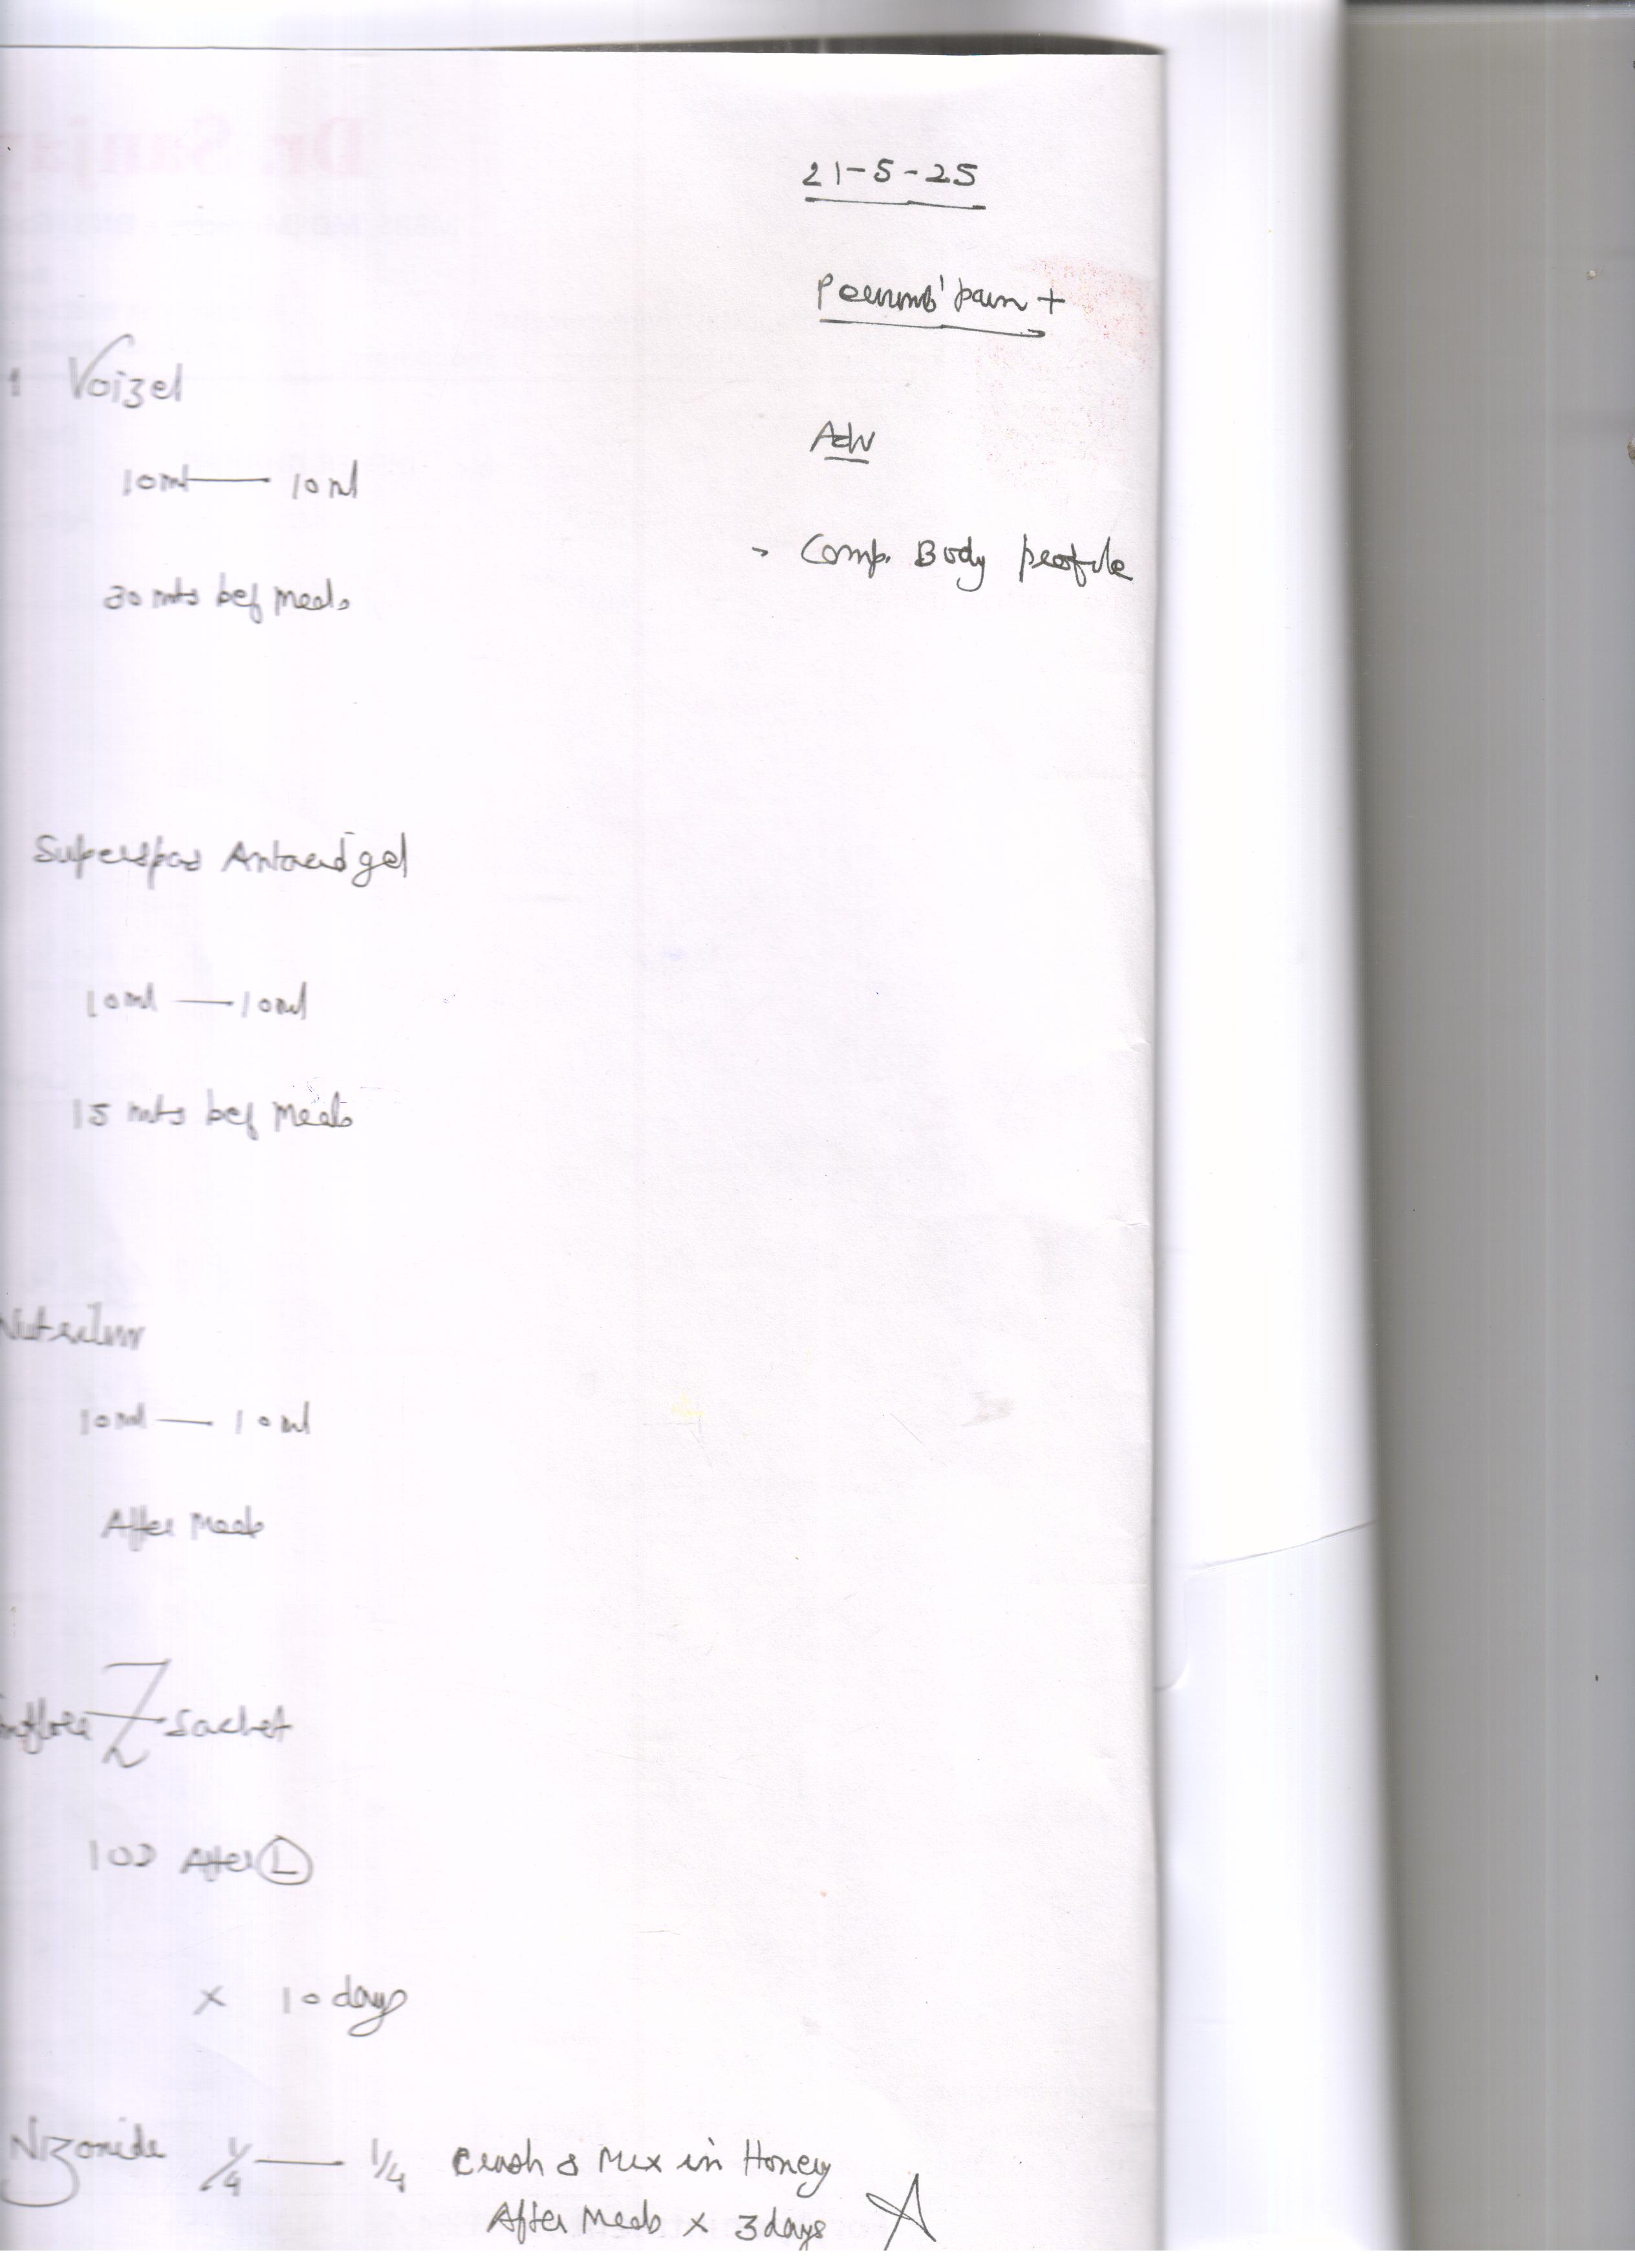 21-5-25
pain +
1 Voizel
Adv
10ml — 10ml
> Comp. Body profile
30 mts bef meals
Superspas Antacid gel
10ml — 10ml
15 mts bef meals
10ml — 10ml
After meals
Z sachet
1 OD After L
x 10 days
Nizonide 1/4 — 1/4 Crush & Mix in Honey
After Meals x 3 days